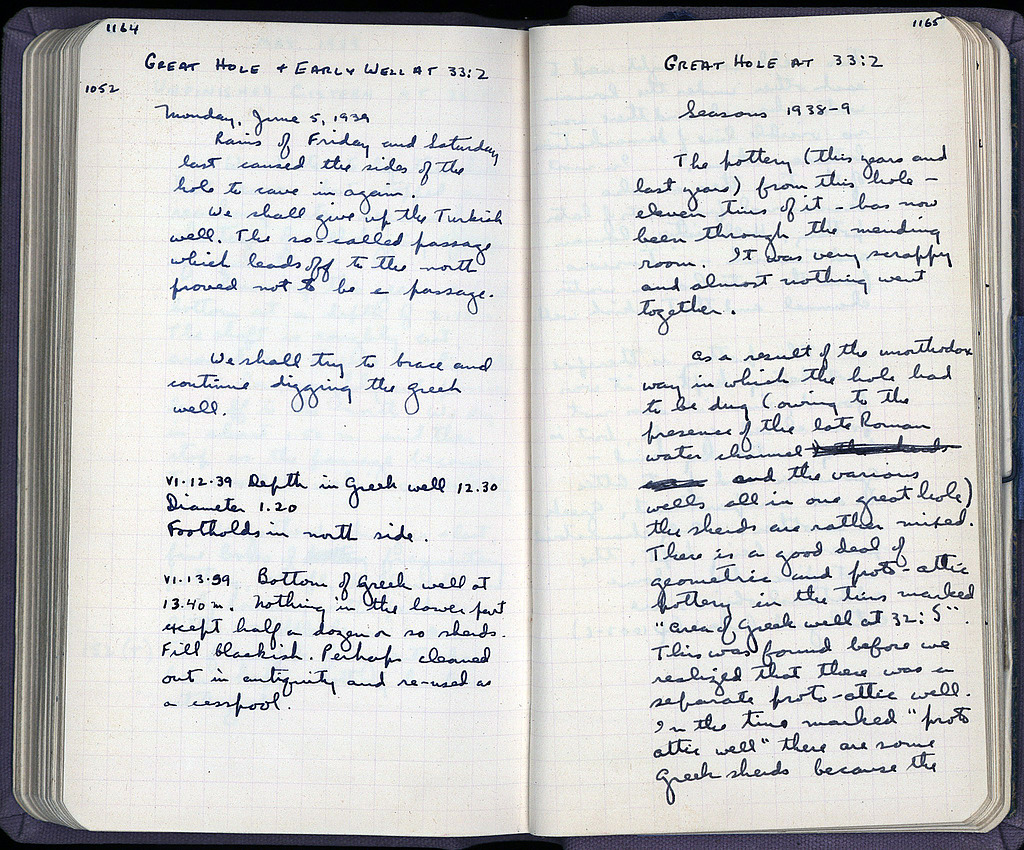 1164
GREAT HOLE + EARLY WELL AT 33:2
1052
Monday, June 5, 1939
Rains of Friday and Saturday
last caused the sides of the
hole to cave in again.
We shall give up the Turkish
well. The so-called passage
which leads off to the north
proved not to be a passage.
We shall try to brace and
continue digging the greek
well.
VI-12-39 Depth in Greek well 12.30
Diameter 1.20
Footholds in north side.
VI-13-39 Bottom of Greek well at
13.40 m. Nothing in the lower part
except half a dozen or so sherds.
Fill blackish. Perhaps cleaned
out in antiquity and re-used as
a cesspool.
1165
GREAT HOLE AT 33:2
Seasons 1938-9
The pottery (this years and
last years) from this hole -
eleven tins of it - has now
been through the mending
room. It was very scrappy
and almost nothing went
together.
As a result of the unorthodox
way in which the hole had
to be dug (owing to the
presence of the late Roman
water channel
and the various
wells all in one great hole)
the sherds are rather mixed.
There is a good deal of
geometric and proto-attic
pottery in the tins marked
"area of Greek well at 32:5".
This was found before we
realized that there was a
separate proto-attic well.
In the tins marked "proto
attic well" there are some
Greek sherds because the